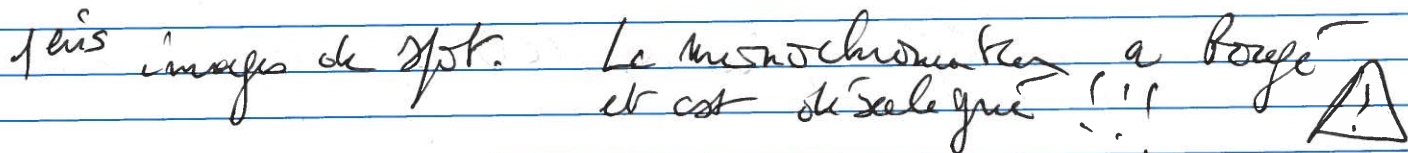 1ers images de spot. Le monochromateur a bougé
et est désaligné !!!